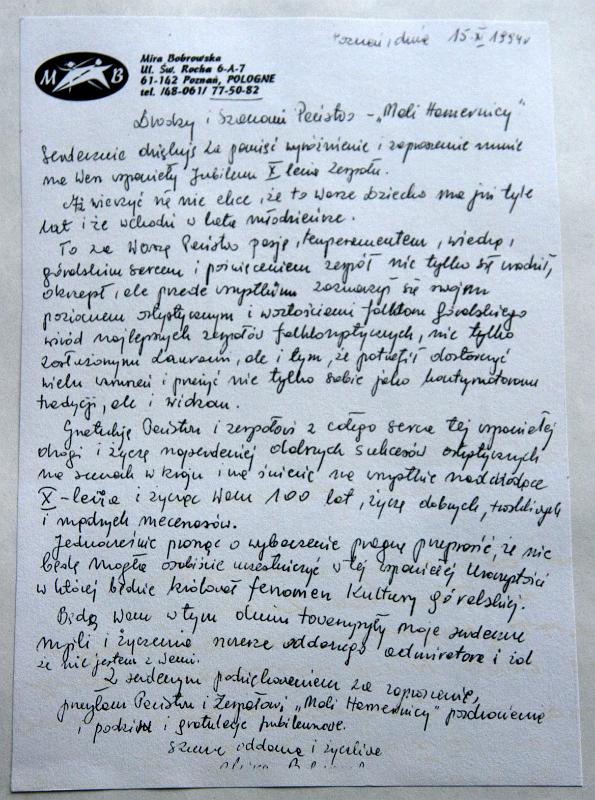 Poznań, dnia 15.XI 1994r
M B
Mira Bobrowska
Ul. Św. Rocha 6-A-7
61-142 Poznań, POLOGNE
tel. /48-061/ 77-50-82
Drodzy i Szanowni Państwo - „Mali Hamernicy"
Serdecznie dziękuję za pamięć wyróżnienie i zaproszenie mnie
na Wasz wspaniały Jubileusz X lecia Zespołu.
Aż wierzyć się nie chce, że to Wasze dziecko ma już tyle
lat i że wchodzi w lata młodzieńcze.
To za Waszą Państwo pasją, temperamentem, wiedzą,
góralskim sercem i poświęceniem zespół nie tylko się urodził,
okrzepł, ale przede wszystkim zaznaczył się swoim
poziomem artystycznym i wartościami folkloru góralskiego
wśród najlepszych zespołów folklorystycznych, nie tylko
zasłużonymi laurami, ale i tym, że potrafił dostarczyć
wielu wzruszeń i przeżyć nie tylko sobie jako kontynuatorom
tradycji, ale i widzom.
Gratuluję Państwu i zespołowi z całego serca tej wspaniałej
drogi i życzę najserdeczniej dalszych sukcesów artystycznych
na scenach w kraju i na świecie na wszystkie nadchodzące
X-lecia i życząc Wam 100 lat, życzę dobrych, troskliwych
i mądrych mecenasów.
Jednocześnie prosząc o wybaczenie pragnę przeprosić, że nie
będę mogła osobiście uczestniczyć w tej wspaniałej Uroczystości
w której będzie królował fenomen Kultury góralskiej.
Będą Wam w tym dniu towarzyszyły moje serdeczne
myśli i życzenia szczerze oddanego admiratora i żal
że nie jestem z Wami.
Z serdecznym podziękowaniem za zaproszenie,
przesyłam Państwu i Zespołowi „Mali Hamernicy" pozdrowienia
i podziw i gratulacje jubileuszowe.
szczerze oddana i życzliwa